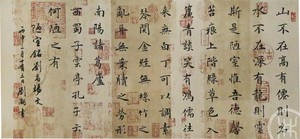 山不在高有仙則名
水不在深有龍則靈
斯是陋室惟吾德馨
苔痕上階綠草色入
簾青談笑有鴻儒往
來無白丁可以調素
琴閱金經無絲竹之
亂耳無案牘之勞形
南陽諸葛廬
西蜀子雲亭孔子云
何陋之有
陋室銘劉禹錫文